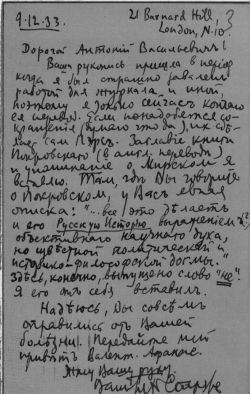 9.12.33.
21 Barnard Hill,
London, N.10.
Дорогой Антоній Васильевичъ!
Ваша рукопись пришла в період
когда я был страшно завален
работой для журнала и иной,
поэтому я только сейчас кончаю
ея перевод. Если понадобятся со-
кращенія (думаю что да), их сдѣ-
лает сам Пэрс. Заглавіе книги
Покровскаго (в англ. переводѣ)
и упоминаніе о Мирском я
вставлю. Там гдѣ Вы говорите
о Покровском, у Вас явная
описка: "...все это дѣлаетъ
и его Русскую Исторію выраженіем
объективнаго научнаго духа,
но цвѣтной политической и
историко-философской догмы."
Здѣсь, конечно, выпущено слово "не".
Я его от себя вставил.
Надѣюсь, Вы совсѣм
оправились от Вашей
болѣзни. Передайте мой
привѣт Валент. Афанас.
Жму Вашу руку.
Ваш